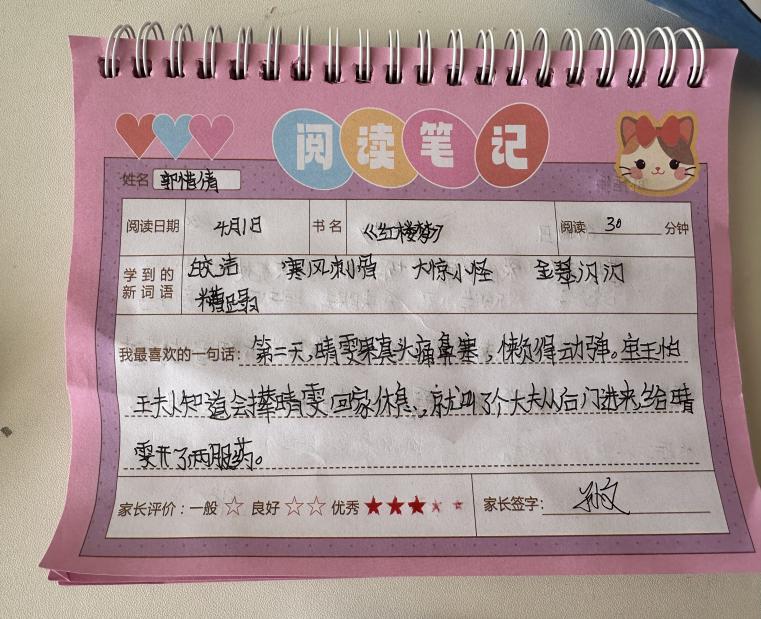 阅读笔记
姓名 郭惜倩
阅读日期 4月1日 书名 《红楼梦》 阅读 30 分钟
学到的 皎洁 寒风刺骨 大惊小怪 金翠闪闪
新词语 糟蹋
我最喜欢的一句话：第二天,晴雯果真头痛鼻塞，懒得动弹。宝玉怕
王夫人知道会撵晴雯回家休息、,就叫了个大夫从后门进来,给晴
雯开了两服药。
家长评价：一般 ☆ 良好 ☆☆ 优秀 ★★★★★ 家长签字：